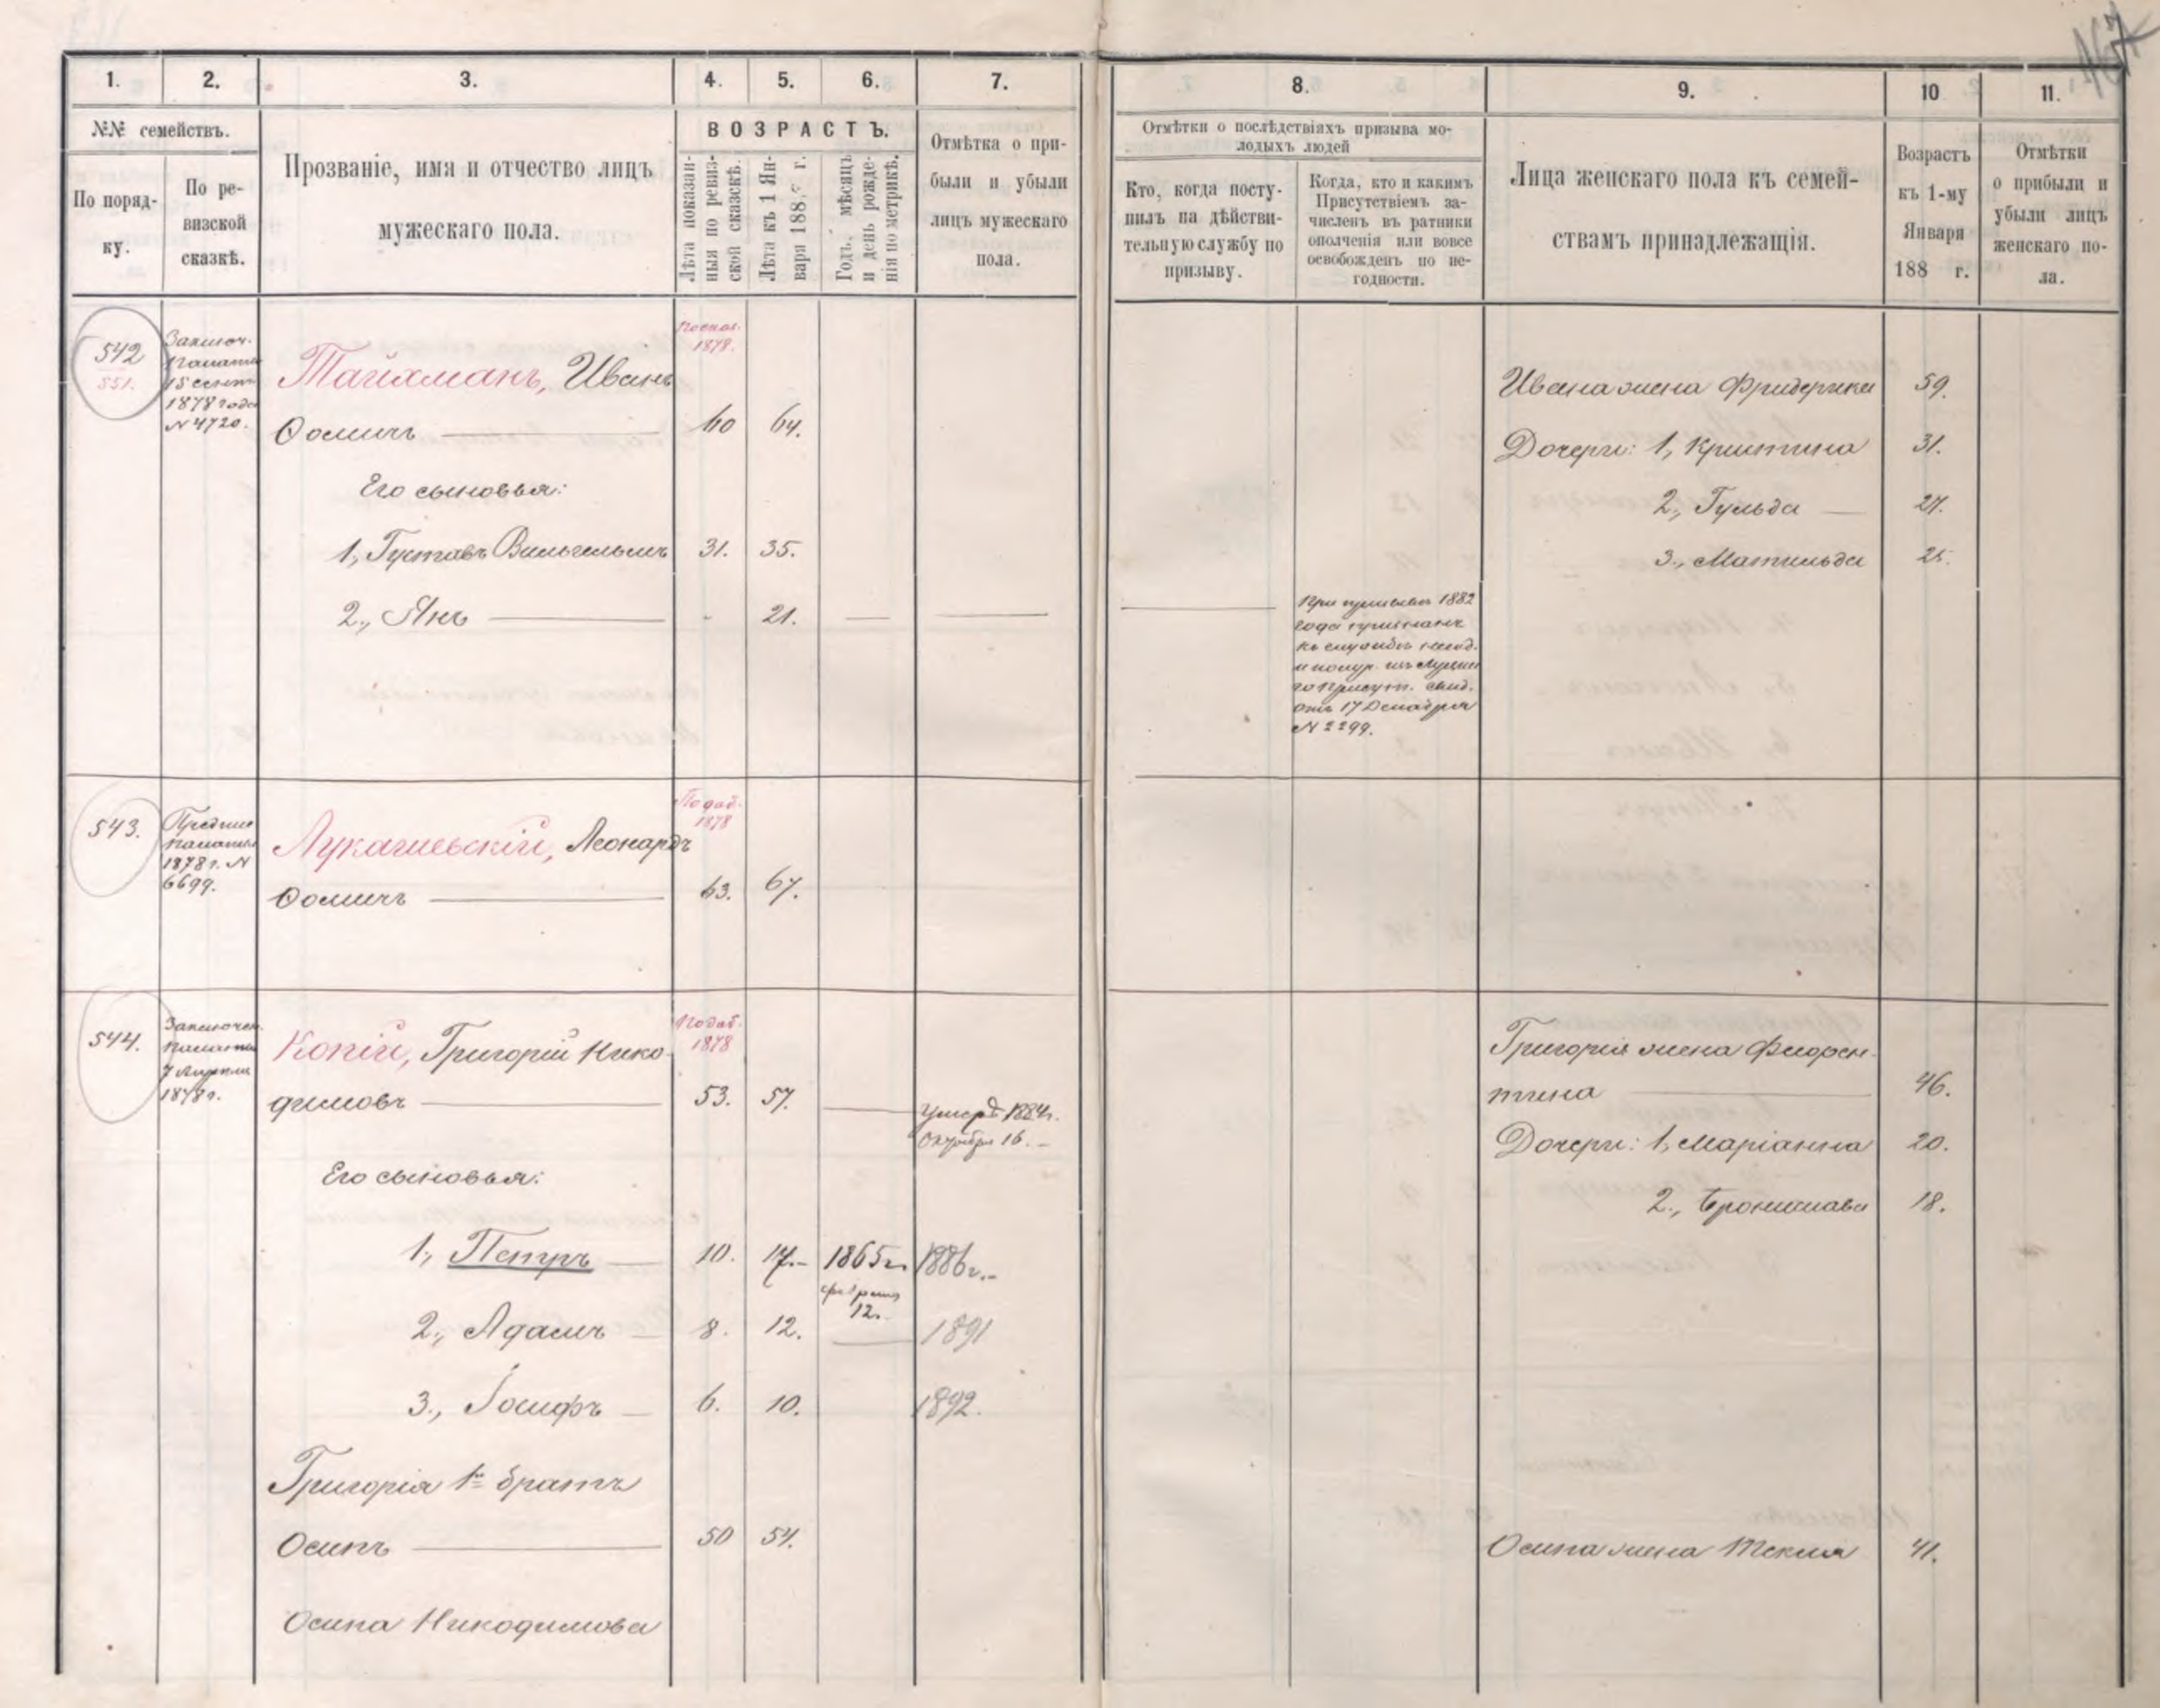 467
1. 2. 3. 4. 5. 6. 7.
№№ семействъ.
По поряд-
ку.
По ре-
визской
сказкѣ.
Прозваніе, имя и отчество лицъ
мужескаго пола.
ВОЗРАСТЪ.
Лѣта показан-
ныя по ревиз-
ской сказкѣ.
Лѣта къ 1 Ян-
варя 188 г.
Годъ, мѣсяцъ
и день рожде-
нія по метрикѣ.
Отмѣтка о при-
были и убыли
лицъ мужескаго
пола.
542
551.
Заключ.
палаты
15 сент.
1878 года
№ 4720.
Тайхманъ, Иванъ
Ѳомичъ
1878.
60 64.
Его сыновья:
1, Густавъ Вильгельмъ 31. 35.
2., Янъ - 21.
543.
палаты
1878 г. №
6699.
Лукашевскій, Леонардъ
Ѳомичъ
1878
63. 67.
544.
Заключен.
палаты
7 Апрѣля
1878 г.
Копій, Григорій Нико-
димовъ
1878
53. 57.
Умеръ 1884 г.
Октября 16.
Его сыновья:
1., Петръ 10. 17. 1865 г. 1886 г.
февраля
12.
2., Адамъ 8. 12. 1891
3., Іосифъ 6. 10. 1892.
Григорія 1й братъ
Осипъ 50 54.
Осипа Никодимова
8. 9. 10 11.
Отмѣтки о послѣдствіяхъ призыва мо-
лодыхъ людей
Кто, когда посту-
пилъ на дѣйстви-
тельную службу по
призыву.
Когда, кто и какимъ
Присутствіемъ за-
численъ въ ратники
ополченія или вовсе
освобожденъ по не-
годности.
Лица женскаго пола къ семей-
ствамъ принадлежащія.
Возрастъ
къ 1-му
Января
188 г.
Отмѣтки
о прибыли и
убыли лицъ
женскаго по-
ла.
Ивана жена Фридерика 59.
Дочери: 1, Кристина 31.
2., Гульда 27.
3., Матильда 25.
При призывѣ 1882
года признанъ
къ службѣ
присут.
отъ 17 Декабря
№ 2299.
Григорія жена Флорен-
тина 46.
Дочери: 1, Маріанна 20.
2., Бронислава 18.
Осипа жена Текля 41.